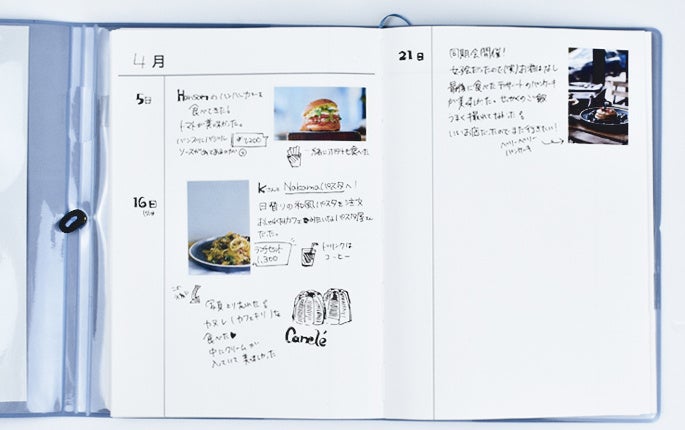 4月
5日
Hansomのハンバーガーを
食べてきた!
トマトが美味しかった。
¥1,200
ソースが
一緒にポテトも食べた
16日
KさんとNakamaパスタへ!
日替りの和風パスタを注文
おしゃれなカフェみたいなパスタ屋さん
だった。
ランチセット
1,300
ドリンクは
コーヒー
写真とり忘れたけど
カヌレ(カフェ
食べた
中にクリームが
入ってて美味しかった
Canelé
21日
同期会開催!
女子会だったので(笑)お酒はなし
最後に食べたデザートのパンケーキ
が美味しかった。せっかくのご飯
うまく撮れてなかった
いいお店だったのでまた行きたい!
ベリーベリー
パンケーキ